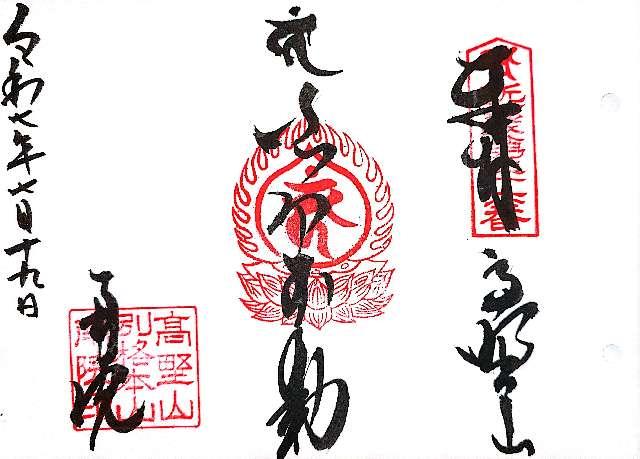 奉拝
高野山
浪切不動
南院
高野山
別格本山
南院
令和七年七月十九日